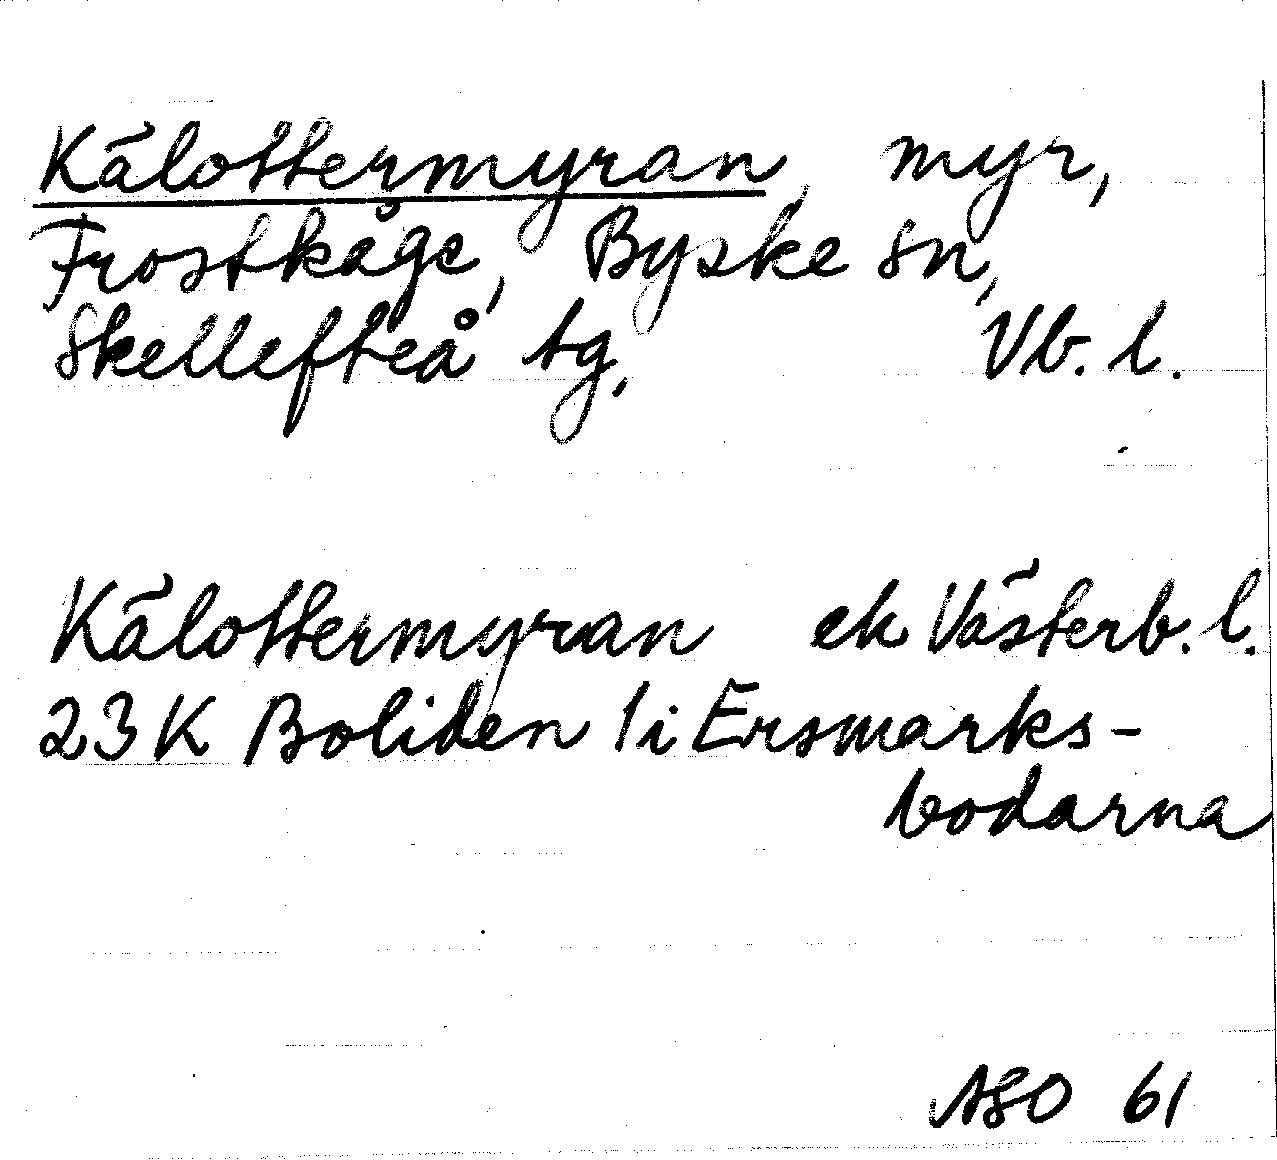 Kälottermyran, myr,
Frostkåge, Byske sn,
Skellefteå tg, Vb. l.
Kälottermyran ek Västerb. l.
23 K Boliden 1 i Ersmarks-
bodarna
ASO 61